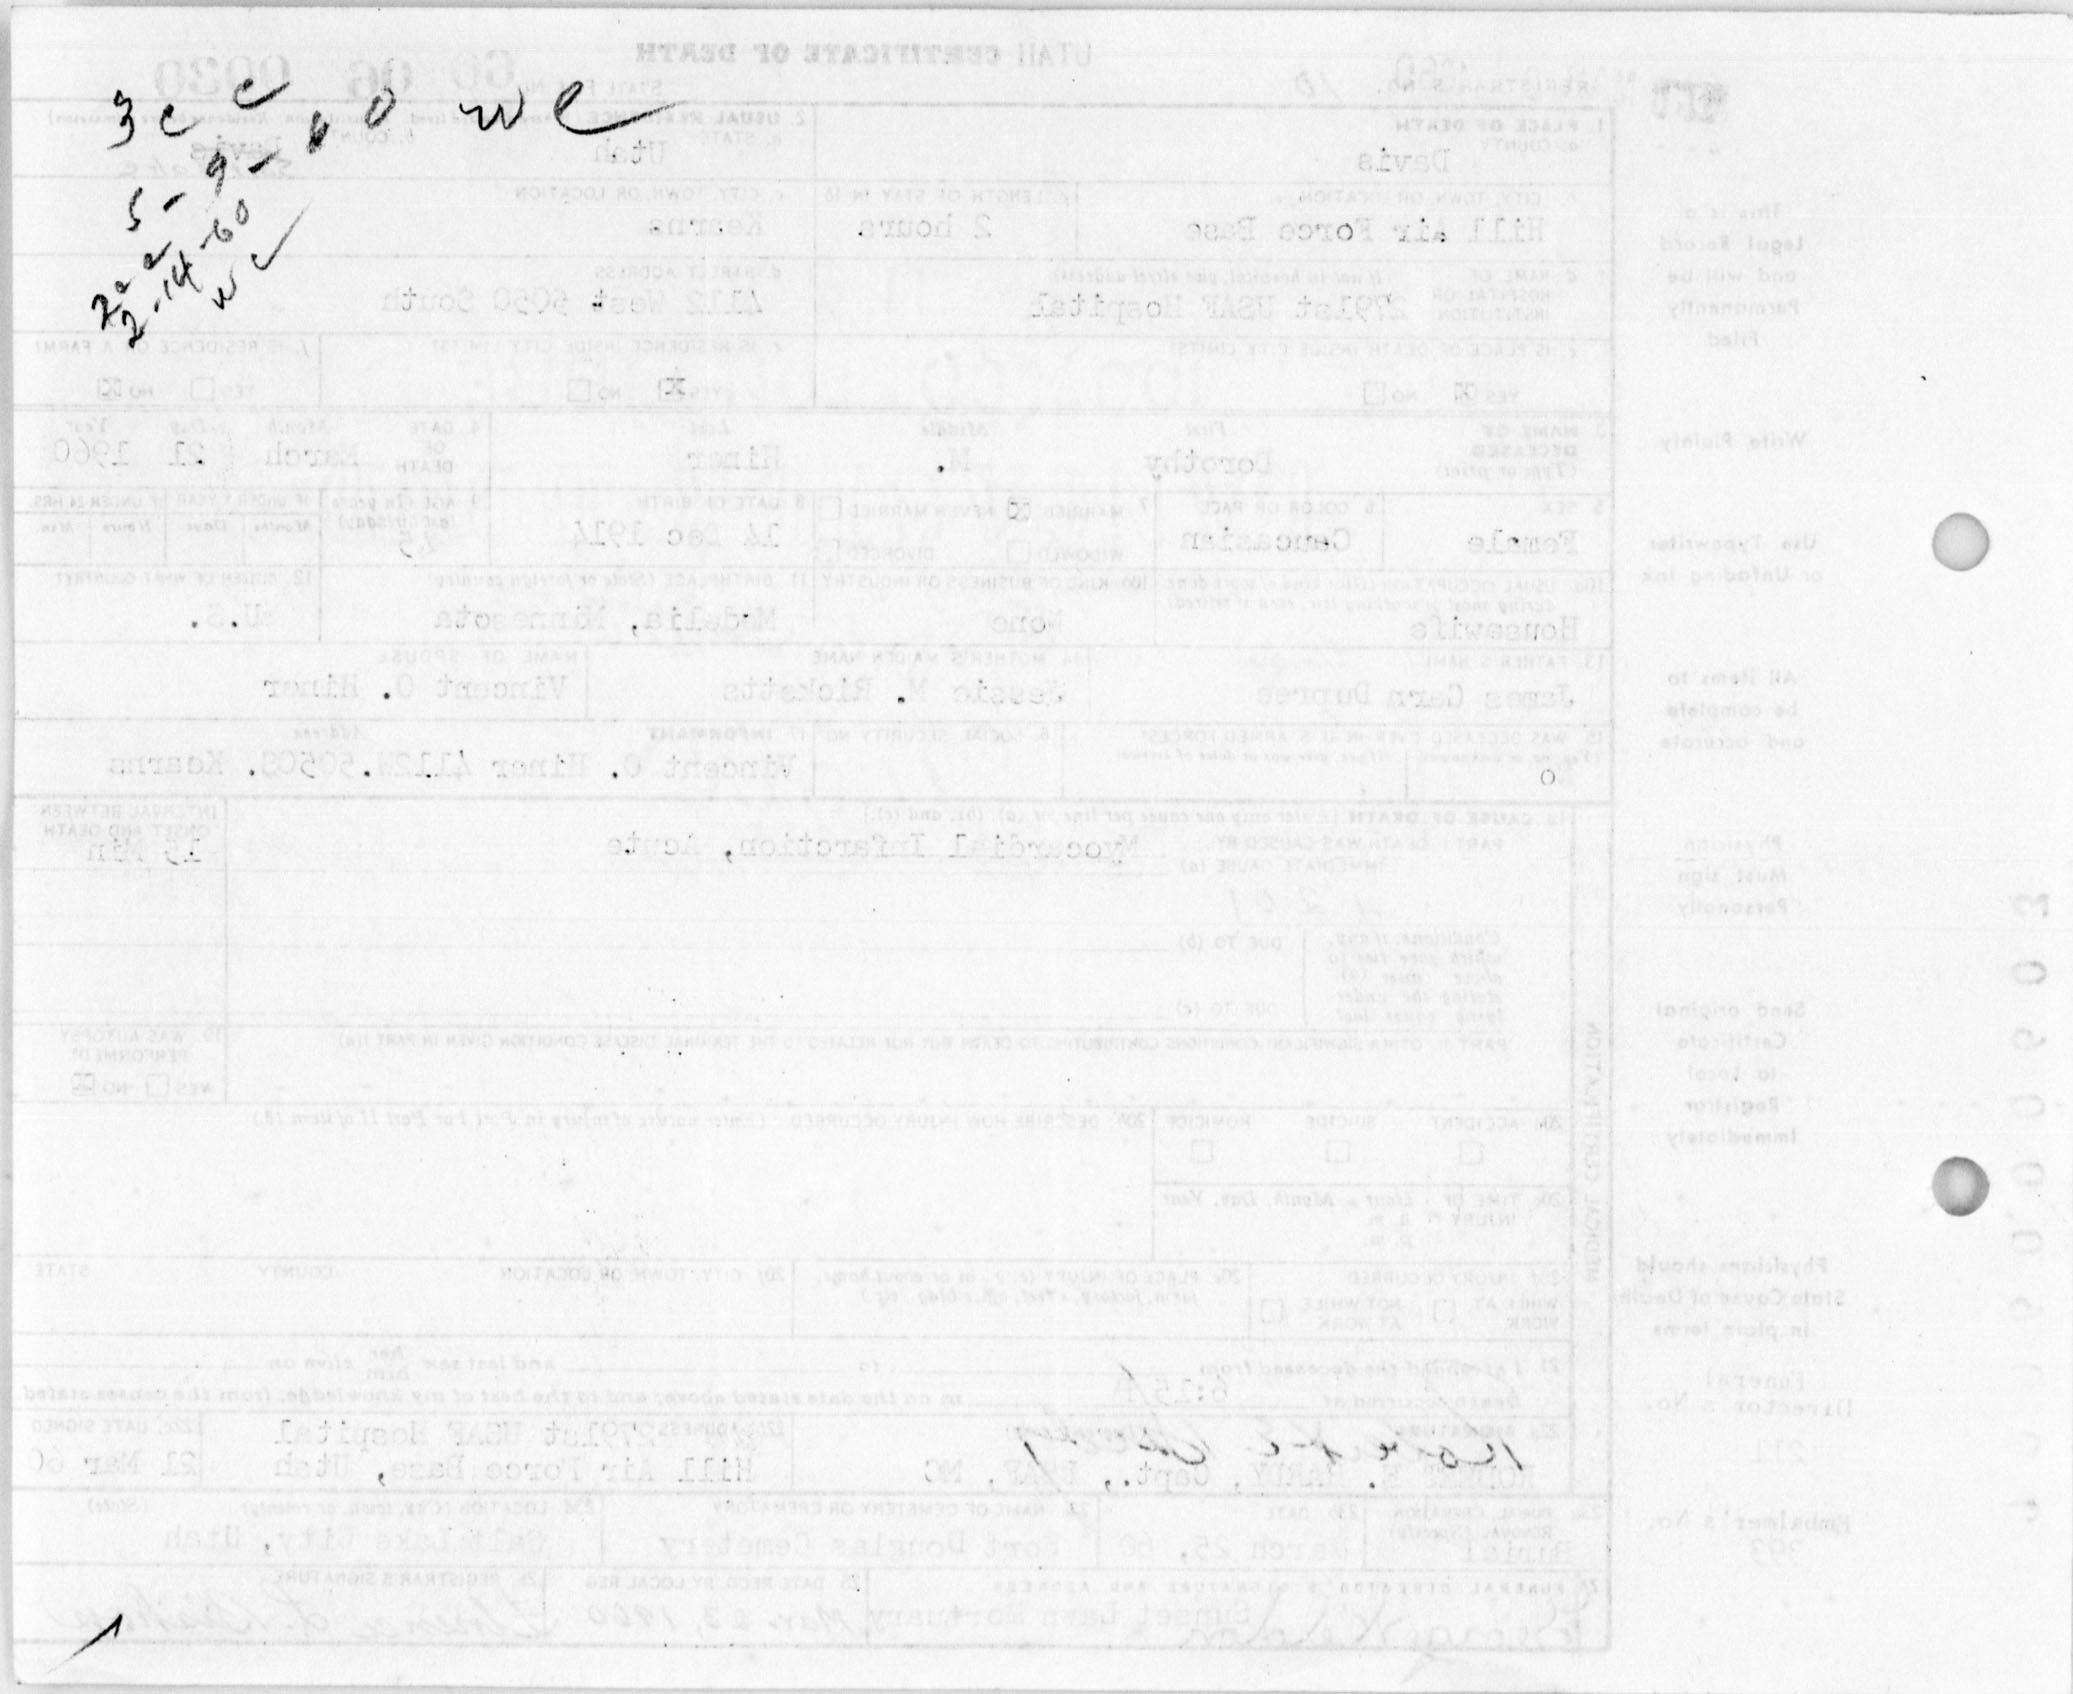 3cc
5-9-60 we
2cc
2-14-60
wc
UTAH CERTIFICATE OF DEATH
REGISTRAR'S NO. 10
STATE FILE NO. 60 06 0030
1. PLACE OF DEATH
a. COUNTY
Davis
2. USUAL RESIDENCE
a. STATE
Utah
b. COUNTY
Davis
Salt Lake
b. CITY, TOWN, OR LOCATION
Hill Air Force Base
c. LENGTH OF STAY IN 1b
2 hours
c. CITY, TOWN, OR LOCATION
Kearns
d. NAME OF HOSPITAL OR INSTITUTION (If not in hospital, give street address)
2791st USAF Hospital
d. STREET ADDRESS
4112 West 5050 South
e. IS PLACE OF DEATH INSIDE CITY LIMITS?
YES NO
e. IS RESIDENCE INSIDE CITY LIMITS?
YES NO
f. IS RESIDENCE ON A FARM?
YES NO
3. NAME OF DECEASED (Type or print)
First Middle Last
Dorothy M. Hiner
4. DATE OF DEATH
Month Day Year
March 21 1960
5. SEX
Female
6. COLOR OR RACE
Caucasian
7. MARRIED NEVER MARRIED
WIDOWED DIVORCED
8. DATE OF BIRTH
14 Dec 1914
9. AGE (In years last birthday)
45
IF UNDER 1 YEAR
Months Days
IF UNDER 24 HRS.
Hours Min.
10a. USUAL OCCUPATION (Give kind of work done during most of working life, even if retired)
Housewife
10b. KIND OF BUSINESS OR INDUSTRY
None
11. BIRTHPLACE (State or foreign country)
Madelia, Minnesota
12. CITIZEN OF WHAT COUNTRY?
U.S.
13. FATHER'S NAME
James Gern Dupree
14. MOTHER'S MAIDEN NAME
Jessie M. Ricketts
NAME OF SPOUSE
Vincent O. Hiner
15. WAS DECEASED EVER IN U.S. ARMED FORCES?
(Yes, no, or unknown) (If yes, give war or dates of service)
16. SOCIAL SECURITY NO.
17. INFORMANT Address
Vincent O. Hiner 4112W.5050S. Kearns
18. CAUSE OF DEATH [Enter only one cause per line for (a), (b), and (c).]
PART I. DEATH WAS CAUSED BY:
IMMEDIATE CAUSE (a)
Myocardial Infarction, Acute
INTERVAL BETWEEN ONSET AND DEATH
15 Min
Conditions, if any, which gave rise to above cause (a), stating the underlying cause last
DUE TO (b)
DUE TO (c)
PART II. OTHER SIGNIFICANT CONDITIONS CONTRIBUTING TO DEATH BUT NOT RELATED TO THE TERMINAL DISEASE CONDITION GIVEN IN PART I(a)
19. WAS AUTOPSY PERFORMED?
YES NO
20a. ACCIDENT SUICIDE HOMICIDE
20b. DESCRIBE HOW INJURY OCCURRED. (Enter nature of injury in Part I or Part II of item 18.)
20c. TIME OF INJURY Hour Month, Day, Year
a. m.
p. m.
20d. INJURY OCCURRED
WHILE AT WORK NOT WHILE AT WORK
20e. PLACE OF INJURY (e.g., in or about home, farm, factory, street, office bldg., etc.)
20f. CITY, TOWN, OR LOCATION COUNTY STATE
MEDICAL CERTIFICATION
21. I attended the deceased from to and last saw her him alive on
Death occurred at 6:15A m on the date stated above; and to the best of my knowledge, from the causes stated
22a. SIGNATURE
HARDY, Capt., USAF, MC
22b. ADDRESS
2791st USAF Hospital
Hill Air Force Base, Utah
22c. DATE SIGNED
21 Mar 60
23a. BURIAL, CREMATION, REMOVAL (Specify)
Burial
23b. DATE
March 25, 60
23c. NAME OF CEMETERY OR CREMATORY
Fort Douglas Cemetry
23d. LOCATION (City, town, or county) (State)
Salt Lake City, Utah
24. FUNERAL DIRECTOR'S SIGNATURE AND ADDRESS
Sunset Lawn Mortuary
25. DATE RECD BY LOCAL REG
Mar. 23, 1960
26. REGISTRAR'S SIGNATURE
This is a
Legal Record
and will be
Permanently
Filed
Write Plainly
Use Typewriter
or Unfading Ink
All items to
be complete
and accurate
Physician
Must sign
Personally
Send original
Certificate
to Local
Registrar
Immediately
Physicians should
State Cause of Death
in plain terms
Funeral
Director's No.
211
Embalmer's No.
393